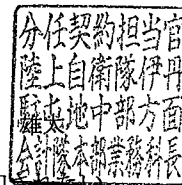 分任契約担当官
陸上自衛隊伊丹
駐屯地中部方面
会計隊本部業務科長
雄太